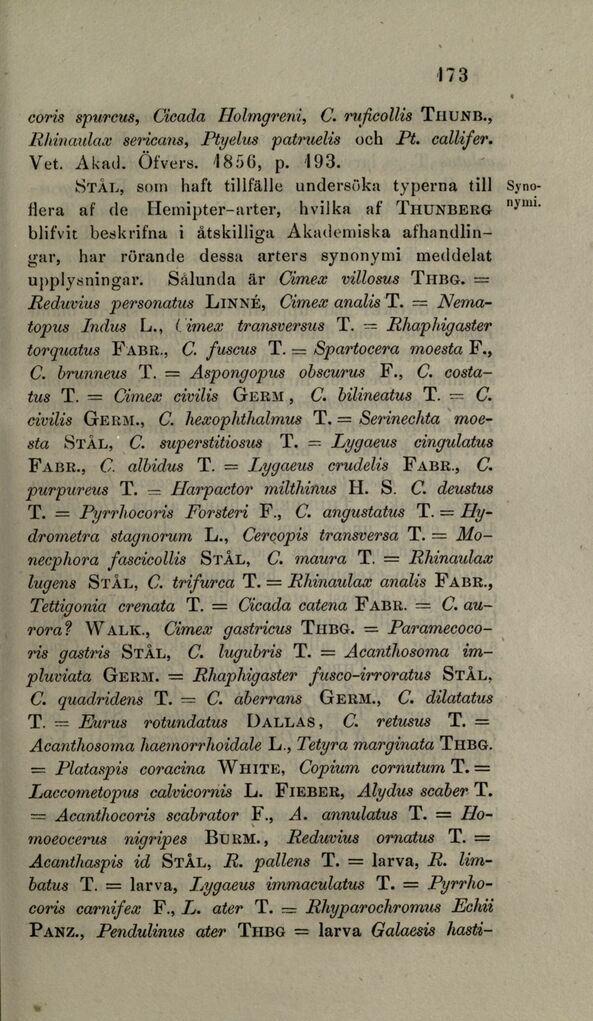 173
coris spurcus, Cicada Holmgreni, C. ruficollis THUNB.,
Rhinaulax sericans, Ptyelus patruelis och Pt. callifer.
Vet. Akad. Öfvers. 1856, p. 193.
STÅL, som haft tillfälle undersöka typerna till
Syno-
flera af de Hemipter-arter, hvilka af THUNBERG
nymi.
blifvit beskrifna i åtskilliga Akademiska afhandlin-
gar, har rörande dessa arters synonymi meddelat
upplysningar. Sålunda är Cimex villosus THBG. =
Reduvius personatus LINNÉ, Cimex analis T. = Nema-
topus Indus L., Cimex transversus T. = Rhaphigaster
torquatus FABR., C. fuscus T. = Spartocera moesta F.,
C. brunneus T. = Aspongopus obscurus F., C. costa-
tus T. = Cimex civilis GERM , C. bilineatus T. = C.
civilis GERM., C. hexophthalmus T. = Serinechta moe-
sta STÅL, C. superstitiosus T. = Lygaeus cingulatus
FABR., C. albidus T. = Lygaeus crudelis FABR., C.
purpureus T. = Harpactor milthinus H. S. C. deustus
T. = Pyrrhocoris Forsteri F., C. angustatus T. = Hy-
drometra stagnorum L., Cercopis transversa T. = Mo-
necphora fascicollis STÅL, C. maura T. = Rhinaulax
lugens STÅL, C. trifurca T. = Rhinaulax analis FABR.,
Tettigonia crenata T. = Cicada catena FABR. = C. au-
rora? WALK., Cimex gastricus THBG. = Paramecoco-
ris gastris STÅL, C. lugubris T. = Acanthosoma im-
pluviata GERM. = Rhaphigaster fusco-irroratus STÅL,
C. quadridens T. = C. aberrans GERM., C. dilatatus
T. = Eurus rotundatus DALLAS, C. retusus T. =
Acanthosoma haemorrhoidale L., Tetyra marginata THBG.
= Plataspis coracina WHITE, Copium cornutum T. =
Laccometopus calvicornis L. FIEBER, Alydus scaber T.
= Acanthocoris scabrator F., A. annulatus T. = Ho-
moeocerus nigripes BURM., Reduvius ornatus T. =
Acanthaspis id STÅL, R. pallens T. = larva, R. lim-
batus T. = larva, Lygaeus immaculatus T. = Pyrrho-
coris carnifex F., L. ater T. = Rhyparochromus Echii
PANZ., Pendulinus ater THBG = larva Galaesis hasti-